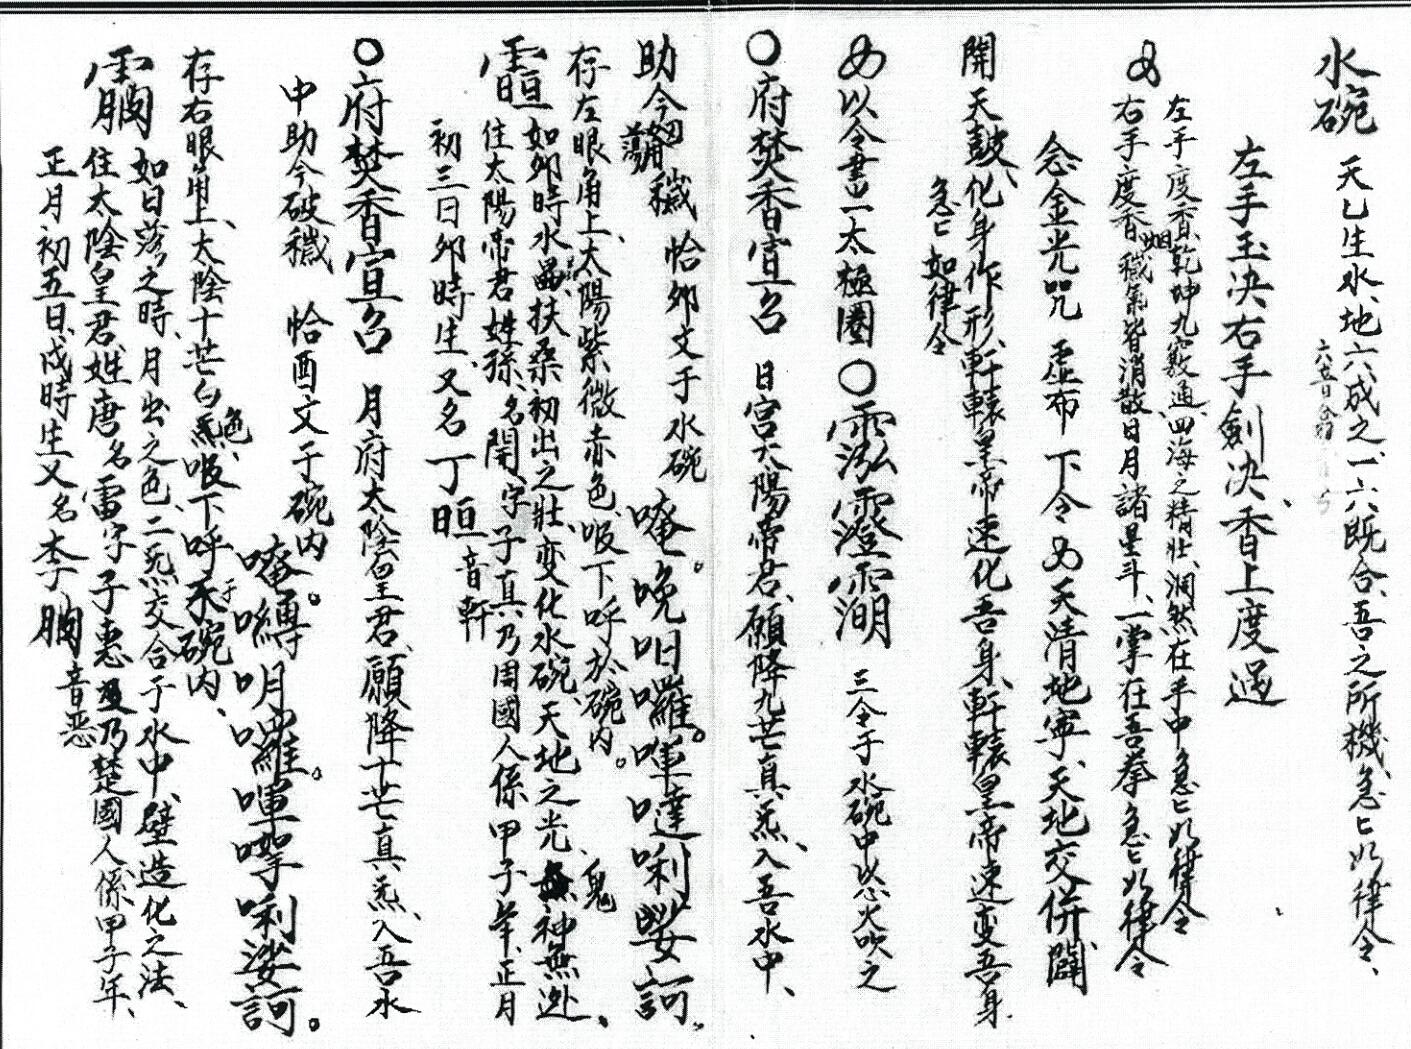 水碗 天乙生水、地六成之、一六既合、吾之所機、急匕如律令、
左手玉決右手劍決、香上度過
左手度香烟、乾坤九竅通、四海之精壯、洞然在手中急匕如律令
右手度香、穢氣皆消散日月諸星斗、一掌在吾拳急匕如律令
念金光咒 虛布 下令 天清地寧、天地交併、闢
開天鼓、化身作形、軒轅皇帝速化吾身、軒轅皇帝速变吾身
急匕如律令
以令書一太極圈〇 三令于水碗中以心火吹之
〇府焚香宣召 日宮太陽帝君、願降九芒真炁、入吾水中、
助今 穢 恰夘文于水碗 唵。晚 囉。 噠唎娑訶。
存左眼角上、太陽紫微赤色、吸下呼於碗内。
如夘時水 扶桑初出之壯、变化水碗、天地之光、鬼神無迯、
住太陽帝君姓孫、名開、字子真乃周國人係甲子年、正月
初三日夘時生、又名丁晅音軒
〇府焚香宣召 月府太陰皇君、願降十芒真炁、入吾水
中助今破穢 恰酉文于碗内。唵 囉。 唎娑訶。
存右眼角上、太陰十芒白色、吸下呼于水碗内、
如日落之時、月出之色、二炁交合于水中、壁造化之法、
住太陰皇君、姓唐名雷字子惠 乃楚國人係甲子年、
正月初五日、戌時生又名李 音惡